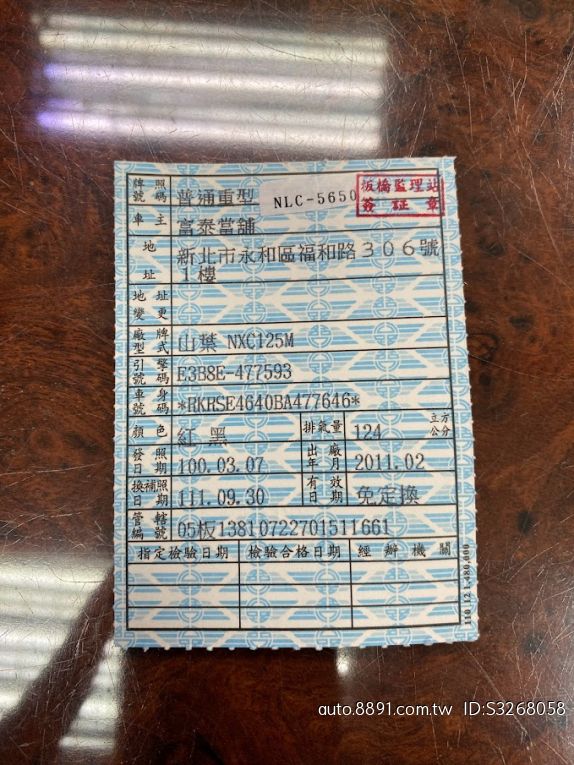 牌照號碼 普通重型 NLC-5650
板橋監理站
簽證章
車主 富泰當舖
地址 新北市永和區福和路306號
1樓
地址變更
廠牌型式 山葉 NXC125M
引擎號碼 E3B8E-477593
車身號碼 *RKRSE4640BA477646*
顏色 紅 黑 排氣量 124 立方公分
發照日期 100.03.07 出廠年月 2011.02
換補照日期 111.09.30 有效日期 免定換
管轄編號 05板13810722701511661
指定檢驗日期 檢驗合格日期 經辦機關
110.12.1,480,000
auto.8891.com.tw ID:S3268058